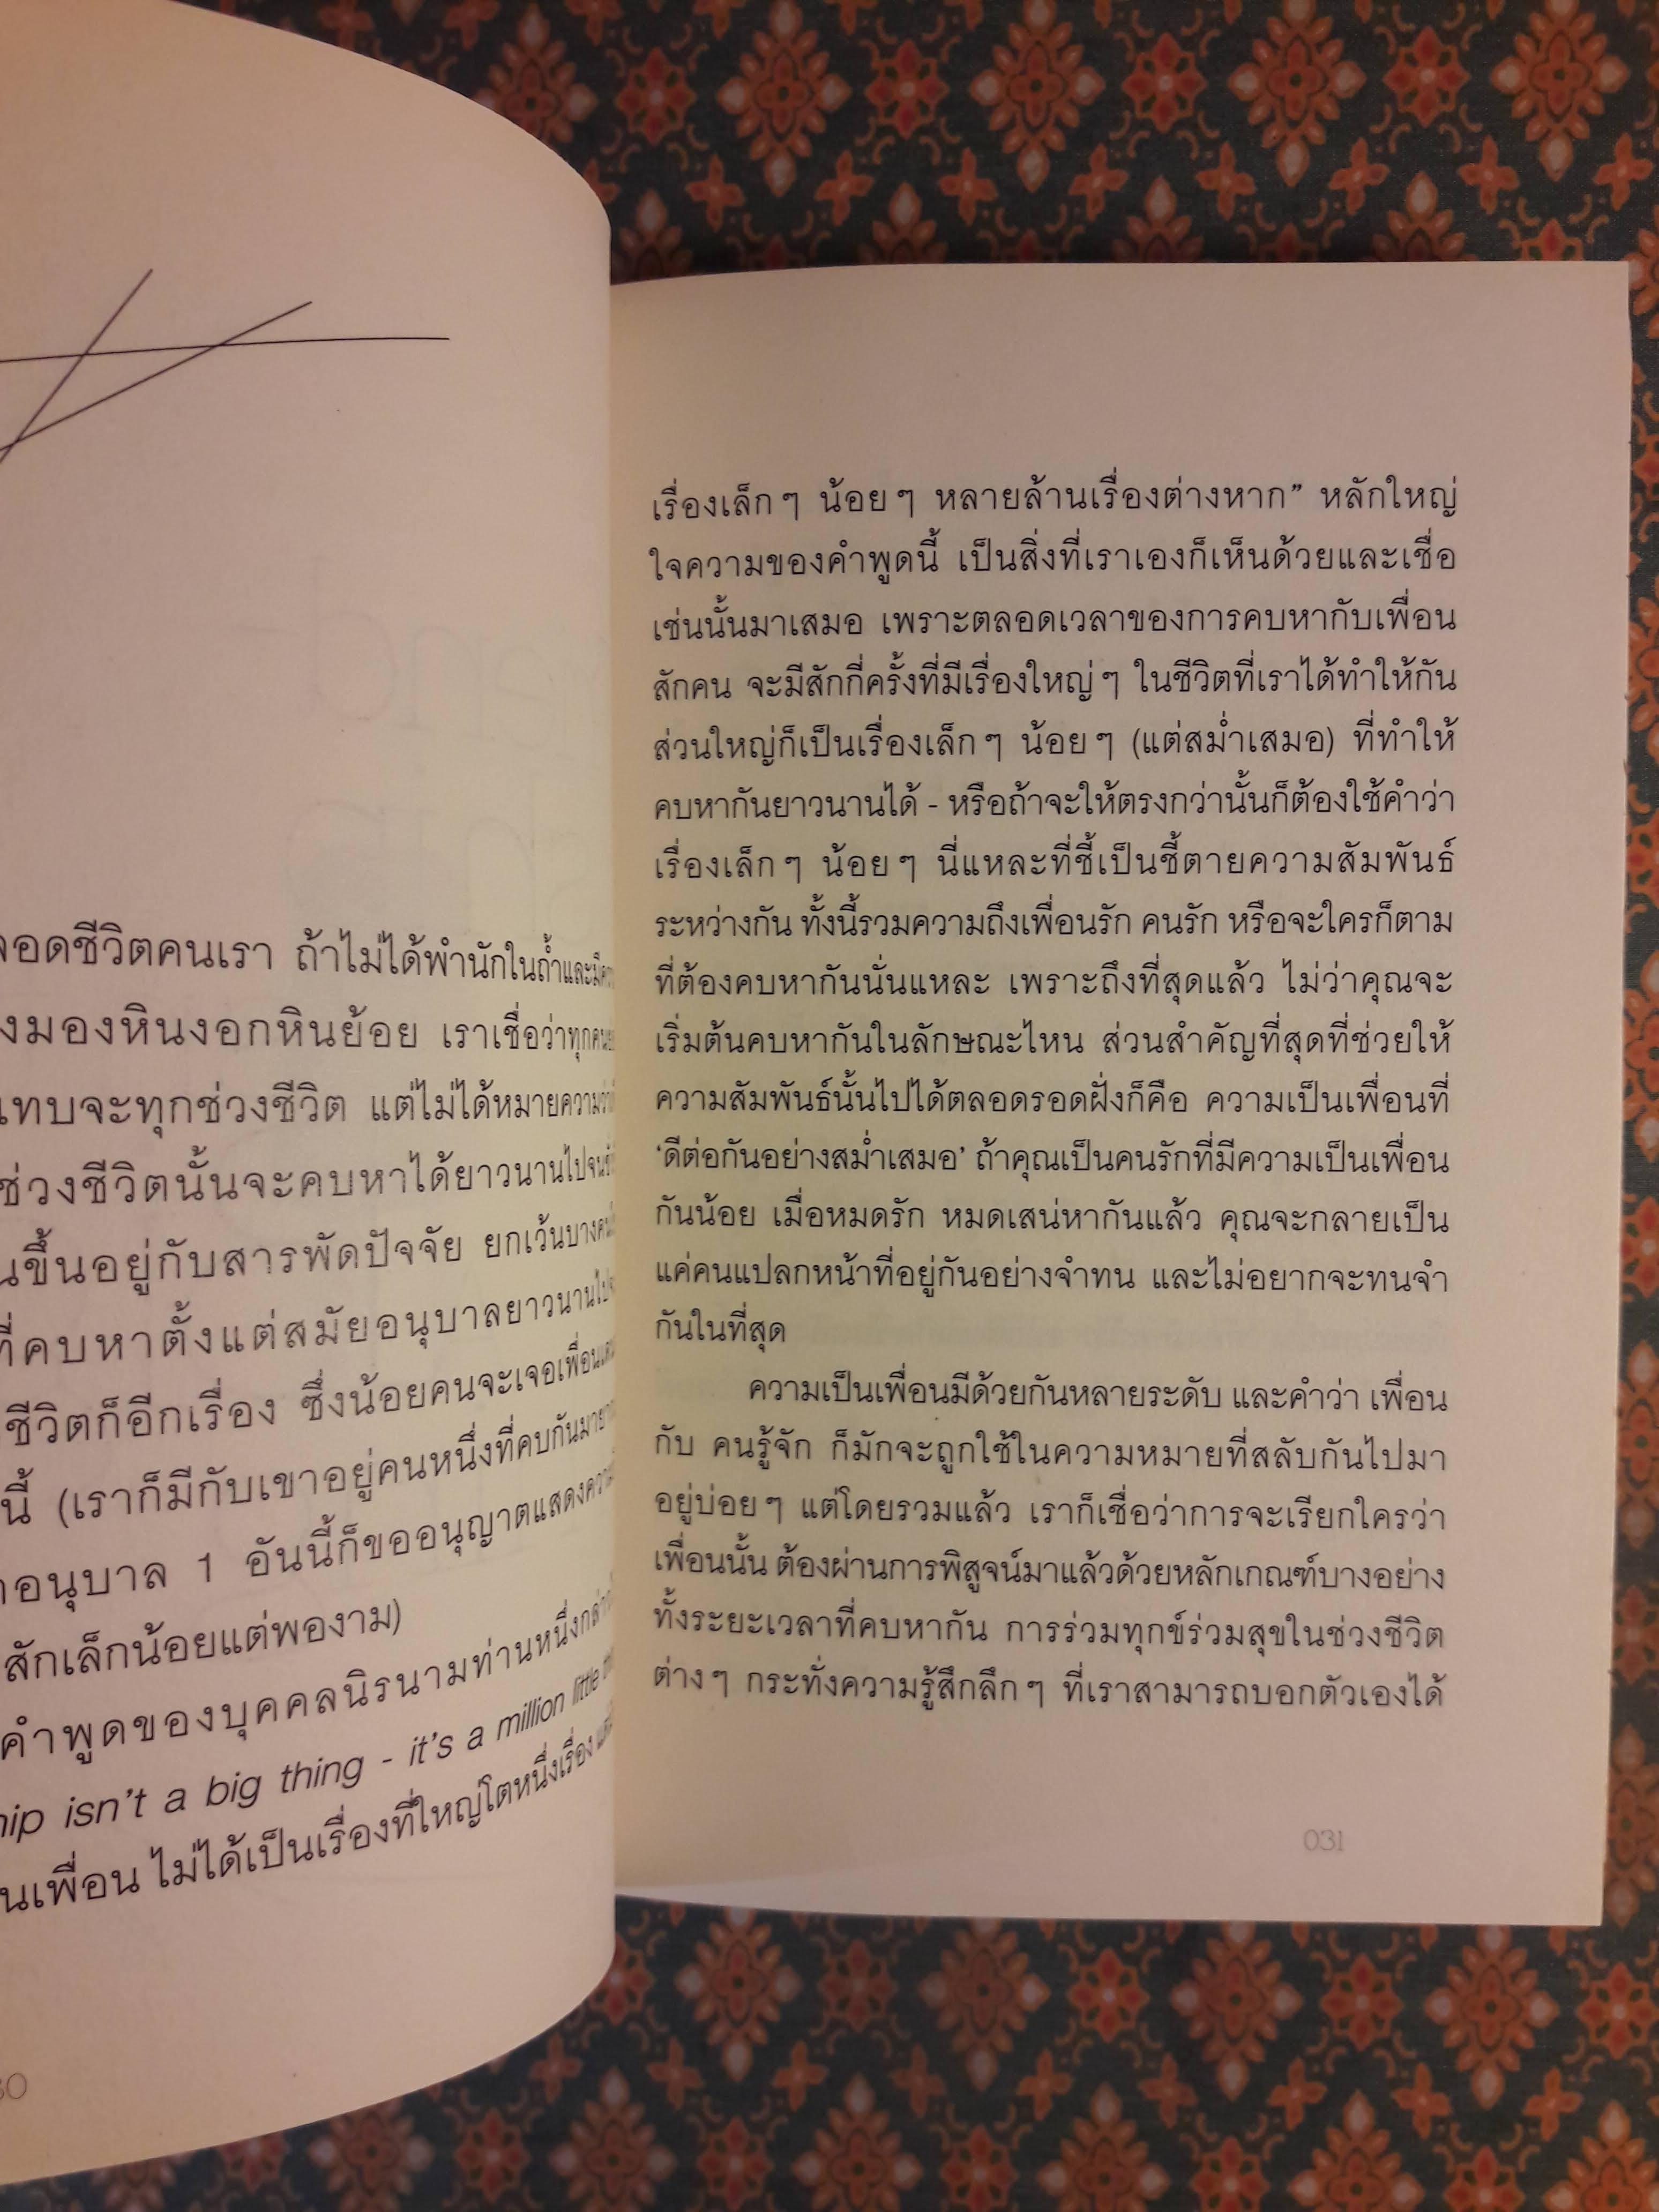 ชีวิตคนเรา ถ้าไม่ได้พำนักในถ้ำและมี
มองหินงอกหินย้อย เราเชื่อว่าทุกคน
แทบจะทุกช่วงชีวิต แต่ไม่ได้หมายความว่า
ช่วงชีวิตนั้นจะคบหาได้ยาวนานไปจน
ขึ้นอยู่กับสารพัดปัจจัย ยกเว้นบางคน
ที่คบหาตั้งแต่สมัยอนุบาลยาวนานไป
ชีวิตก็อีกเรื่อง ซึ่งน้อยคนจะเจอเพื่อน
นี้ (เราก็มีกับเขาอยู่คนหนึ่งที่คบกันมา
อนุบาล 1 อันนี้ก็ขออนุญาตแสดง
สักเล็กน้อยแต่พองาม)
คำพูดของบุคคลนิรนามท่านหนึ่ง
isn't a big thing - it's a million little
เพื่อน ไม่ได้เป็นเรื่องที่ใหญ่โตหนึ่งเรื่อง
เรื่องเล็กๆ น้อยๆ หลายล้านเรื่องต่างหาก” หลักใหญ่
ใจความของคำพูดนี้ เป็นสิ่งที่เราเองก็เห็นด้วยและเชื่อ
เช่นนั้นมาเสมอ เพราะตลอดเวลาของการคบหากับเพื่อน
สักคน จะมีสักกี่ครั้งที่มีเรื่องใหญ่ๆ ในชีวิตที่เราได้ทำให้กัน
ส่วนใหญ่ก็เป็นเรื่องเล็กๆ น้อยๆ (แต่สม่ำเสมอ) ที่ทำให้
คบหากันยาวนานได้ - หรือถ้าจะให้ตรงกว่านั้นก็ต้องใช้คำว่า
เรื่องเล็กๆ น้อยๆ นี่แหละที่ชี้เป็นชี้ตายความสัมพันธ์
ระหว่างกัน ทั้งนี้รวมความถึงเพื่อนรัก คนรัก หรือจะใครก็ตาม
ที่ต้องคบหากันนั่นแหละ เพราะถึงที่สุดแล้ว ไม่ว่าคุณจะ
เริ่มต้นคบหากันในลักษณะไหน ส่วนสำคัญที่สุดที่ช่วยให้
ความสัมพันธ์นั้นไปได้ตลอดรอดฝั่งก็คือ ความเป็นเพื่อนที่
‘ดีต่อกันอย่างสม่ำเสมอ’ ถ้าคุณเป็นคนรักที่มีความเป็นเพื่อน
กันน้อย เมื่อหมดรัก หมดเสน่หากันแล้ว คุณจะกลายเป็น
แค่คนแปลกหน้าที่อยู่กันอย่างจำทน และไม่อยากจะทนจำ
กันในที่สุด
ความเป็นเพื่อนมีด้วยกันหลายระดับ และคำว่า เพื่อน
กับ คนรู้จัก ก็มักจะถูกใช้ในความหมายที่สลับกันไปมา
อยู่บ่อยๆ แต่โดยรวมแล้ว เราก็เชื่อว่าการจะเรียกใครว่า
เพื่อนนั้น ต้องผ่านการพิสูจน์มาแล้วด้วยหลักเกณฑ์บางอย่าง
ทั้งระยะเวลาที่คบหากัน การร่วมทุกข์ร่วมสุขในช่วงชีวิต
ต่างๆ กระทั่งความรู้สึกลึกๆ ที่เราสามารถบอกตัวเองได้
031